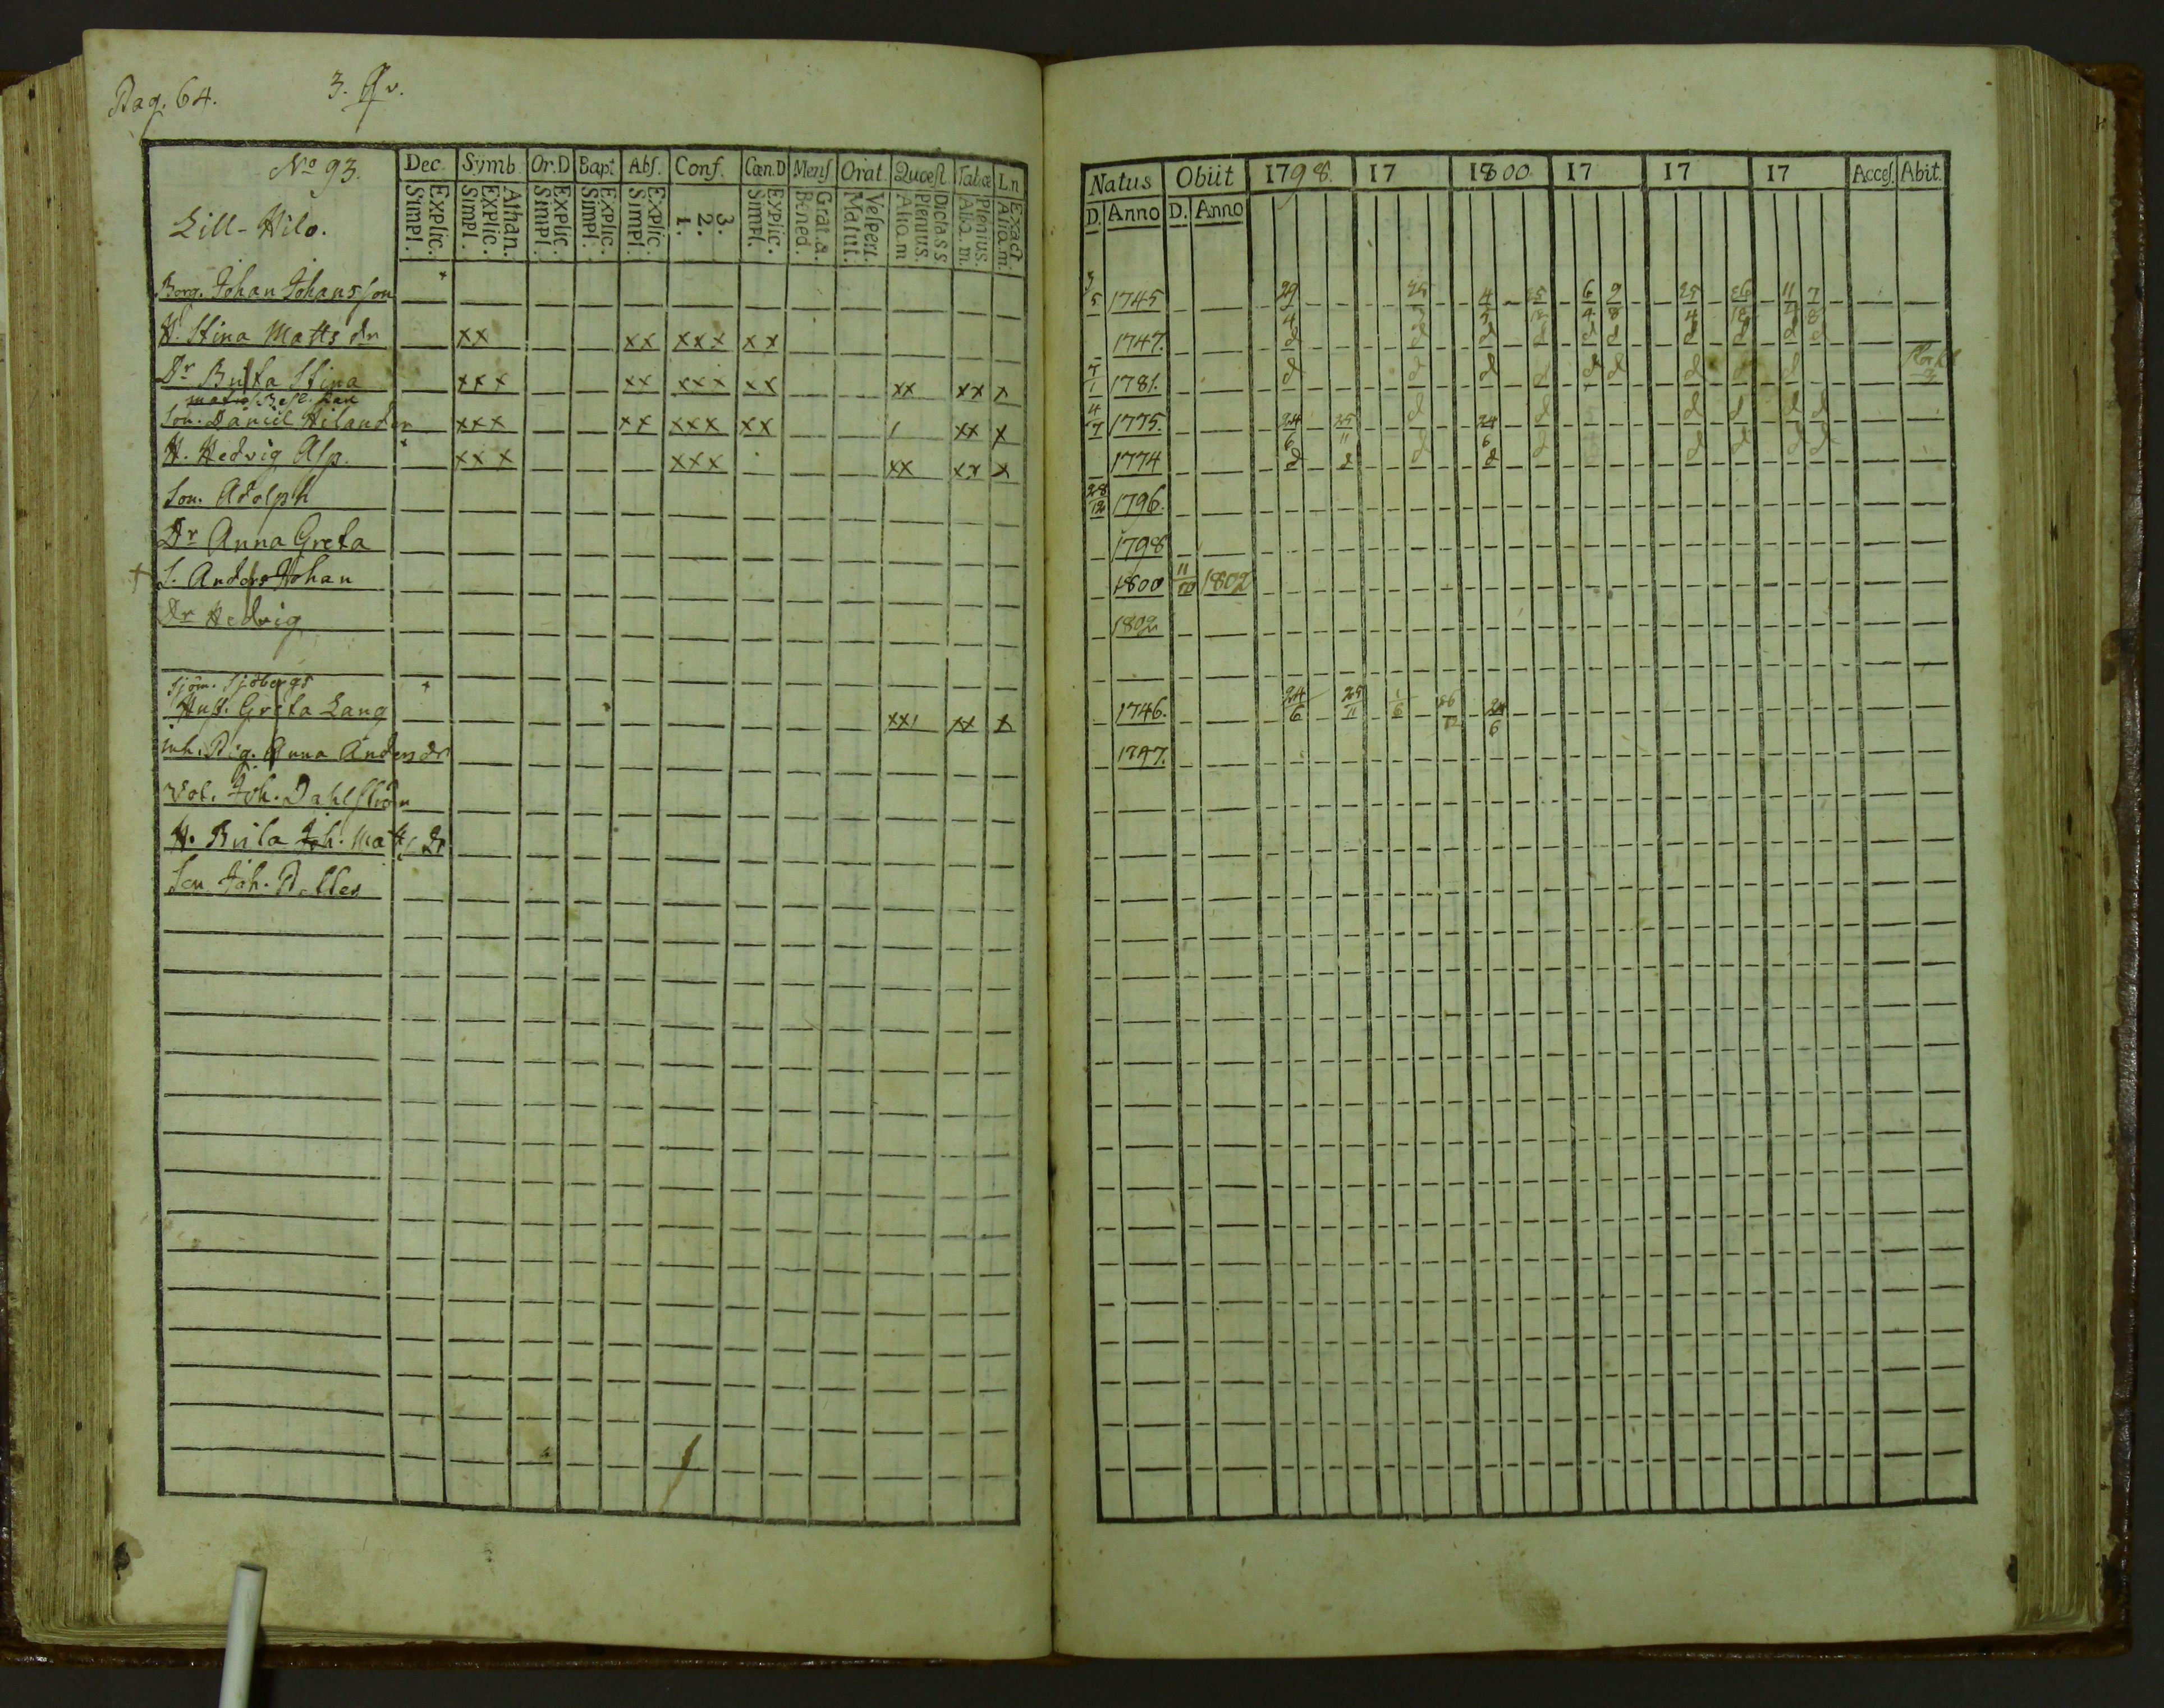 Pag. 64. 3. Qv.
No 93. Dec. Symb. Or. D Bapt Abs. Conf. Cœn. D Mens. Orat. Quæst Tabulæ L.n
Explic. Simpl. Athan. Explic. Simpl. Explic. Simpl. Explic. Simpl. Explic. Simpl. 3. 2. 1. Explic. Simpl. Grat. a. Bened. Vespert. Matut. Dicta s s Plenius. Aliq. m Plenius. Aliq. m. Exact Aliq. m.
Lill-Hilo.
Natus Obiit 1798. 17 1800 17 17 17 Acces. Abit.
D. Anno D. Anno
Borg. Johan Johansson 3/5 1745 29/4 25/3 4/5 25/12 6/4 9/8 25/4 26/12 11/4 7/8
H. Stina Matts dr xx xx xxx xx 1747. d d d d d d d d d d
Dr Brita Stina xxx xx xxx xx xx xx x 7/1 1781. d d d d d d d d d
Son. Daniel Hilander xxx xx xxx xx / xx x 4/7 1775. 24/6 25/11 d 24/6 d d d d d
H. Hedvig Alp. xxx xxx xx xx x 1774 d d d d d d d d d
Son. Adolph 28/12 1796.
Dr Anna Greta 1798
+ S. Anders Johan 1800 11/10 1802
Dr Hedvig 1802
Sjöm. Sjöbergs
Hust. Greta Lang xx/ xx x 1746. 24/6 25/11 1/6 26/12 24/6
inh. Pig. Anna Anders dr 1747.
Vol. Joh. Dahlström
H. Brita Joh. Matts dr
Son Joh.